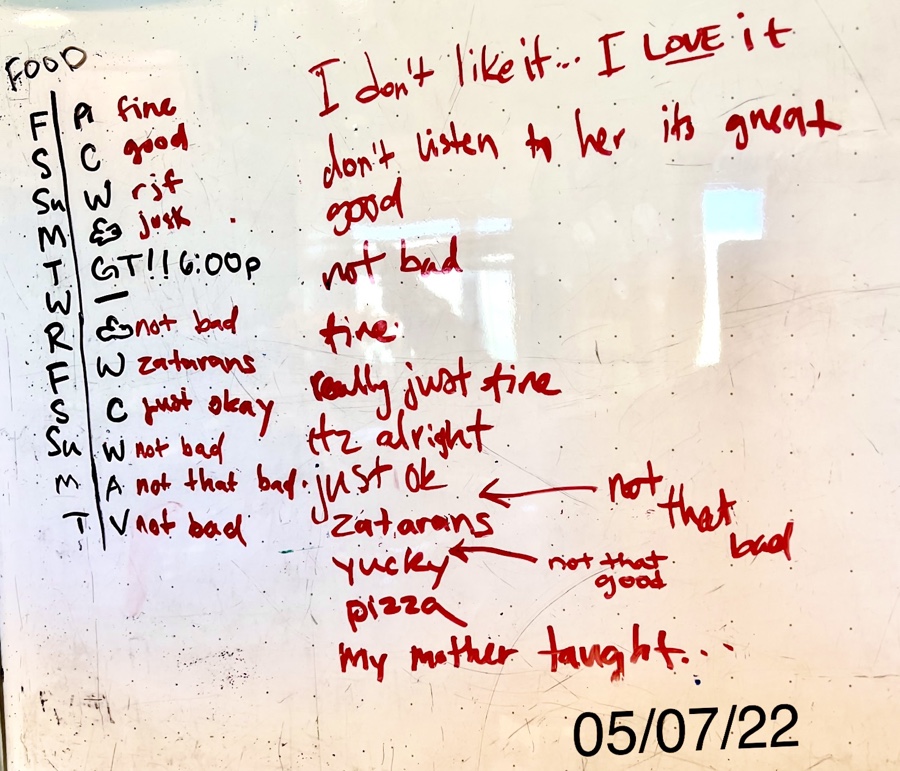 FOOD
F A fine
S C good
Su W rjf
M & jusk
T GT!! 6:00p
W —
R & not bad
F W zatarans
S C just okay
Su W not bad
M A not that bad.
T V not bad
I don't like it... I LOVE it
don't listen to her its great
good
not bad
fine
really just fine
itz alright
just ok
not that bad
zatarans
yucky
not that good
pizza
My mother taught...
05/07/22